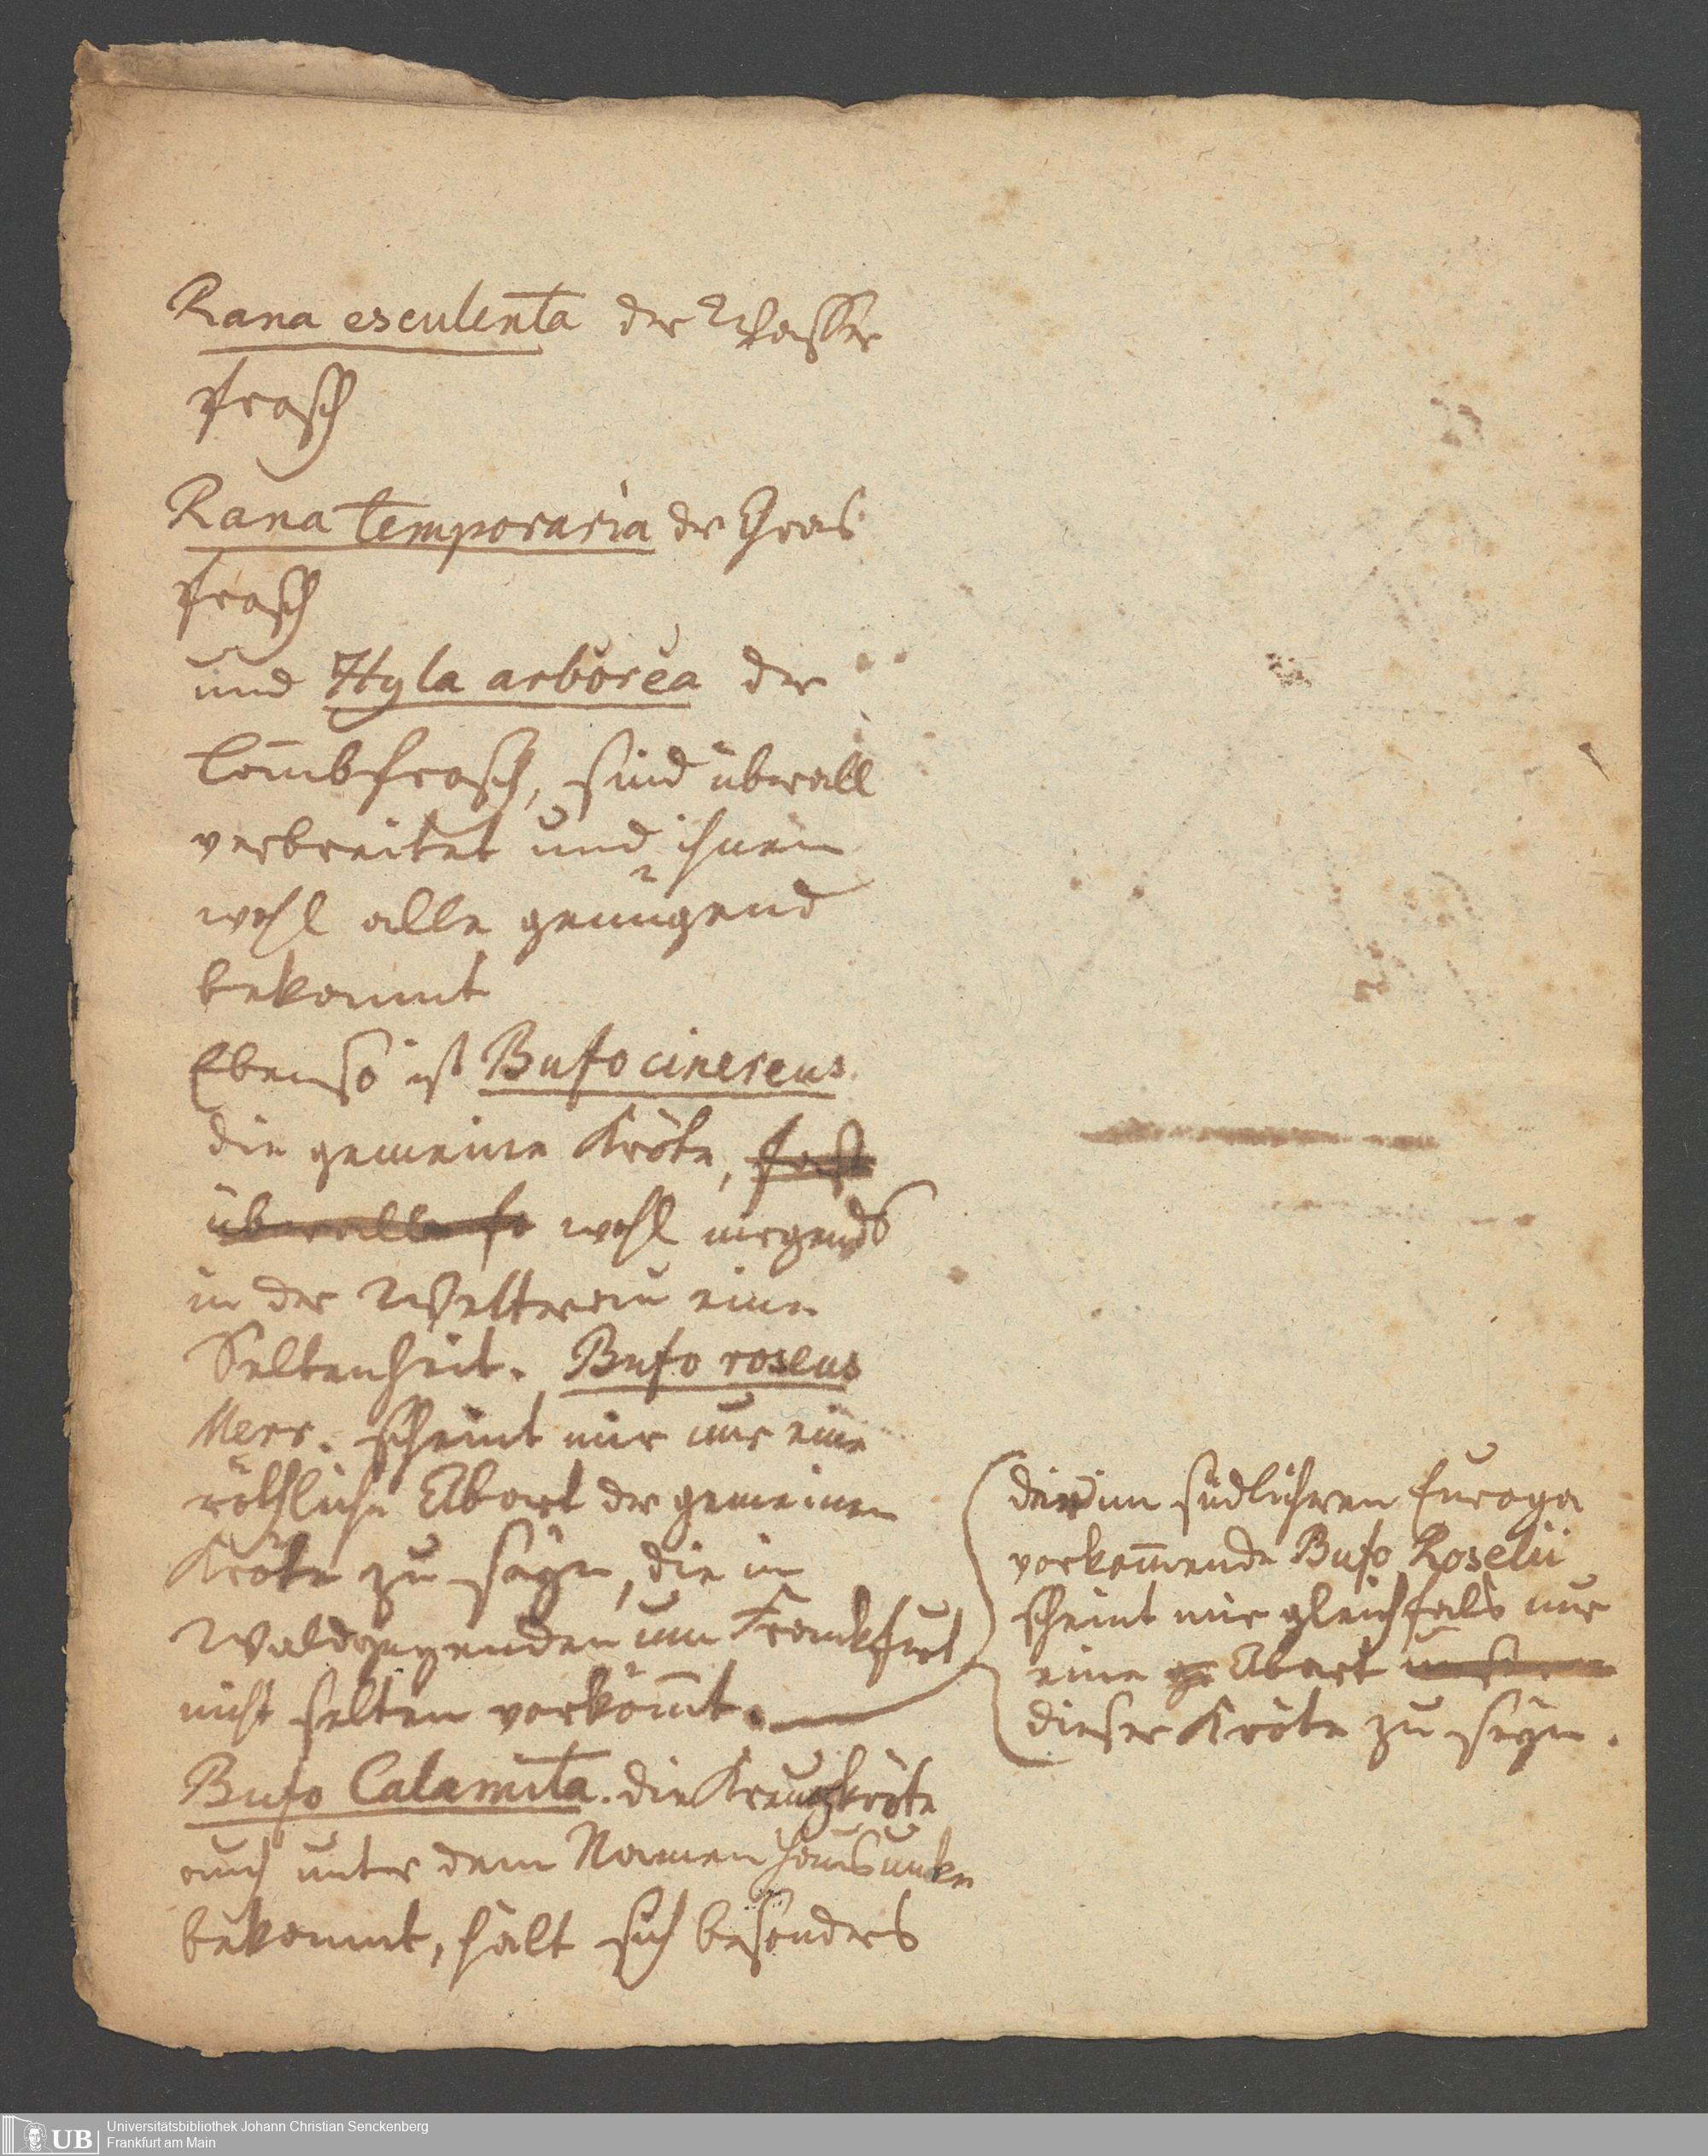 Rana esculenta der Wasser
frosch
Rana temporaria der Gras
frosch
und Hyla arborea der
Laubfrosch, sind überall
verbreitet und ihnen
wohl alle genügend
bekannt
Ebenso ist Bufo cinereus
die gemeine Kröte, fast
überall so wohl nirgends
in der Wetterau eine
Seltenheit. Bufo roseus
Merr. scheint mir nur eine
röthliche Abart der gemeinen
Kröte zu seyn, die in
Waldgegenden um Frankfurt
nicht selten vorkom̅t.
Bufo Calamita. die Kreuzkröte
auch unter dem Namen Hausunke
bekannt, hält sich besonders
die im südlichern Europa
vorkom̅ende Bufo Roselii
scheint mir gleichfals nur
eine Abart
dieser Kröte zu seyn.
Universitätsbibliothek Johann Christian Senckenberg
Frankfurt am Main
UB